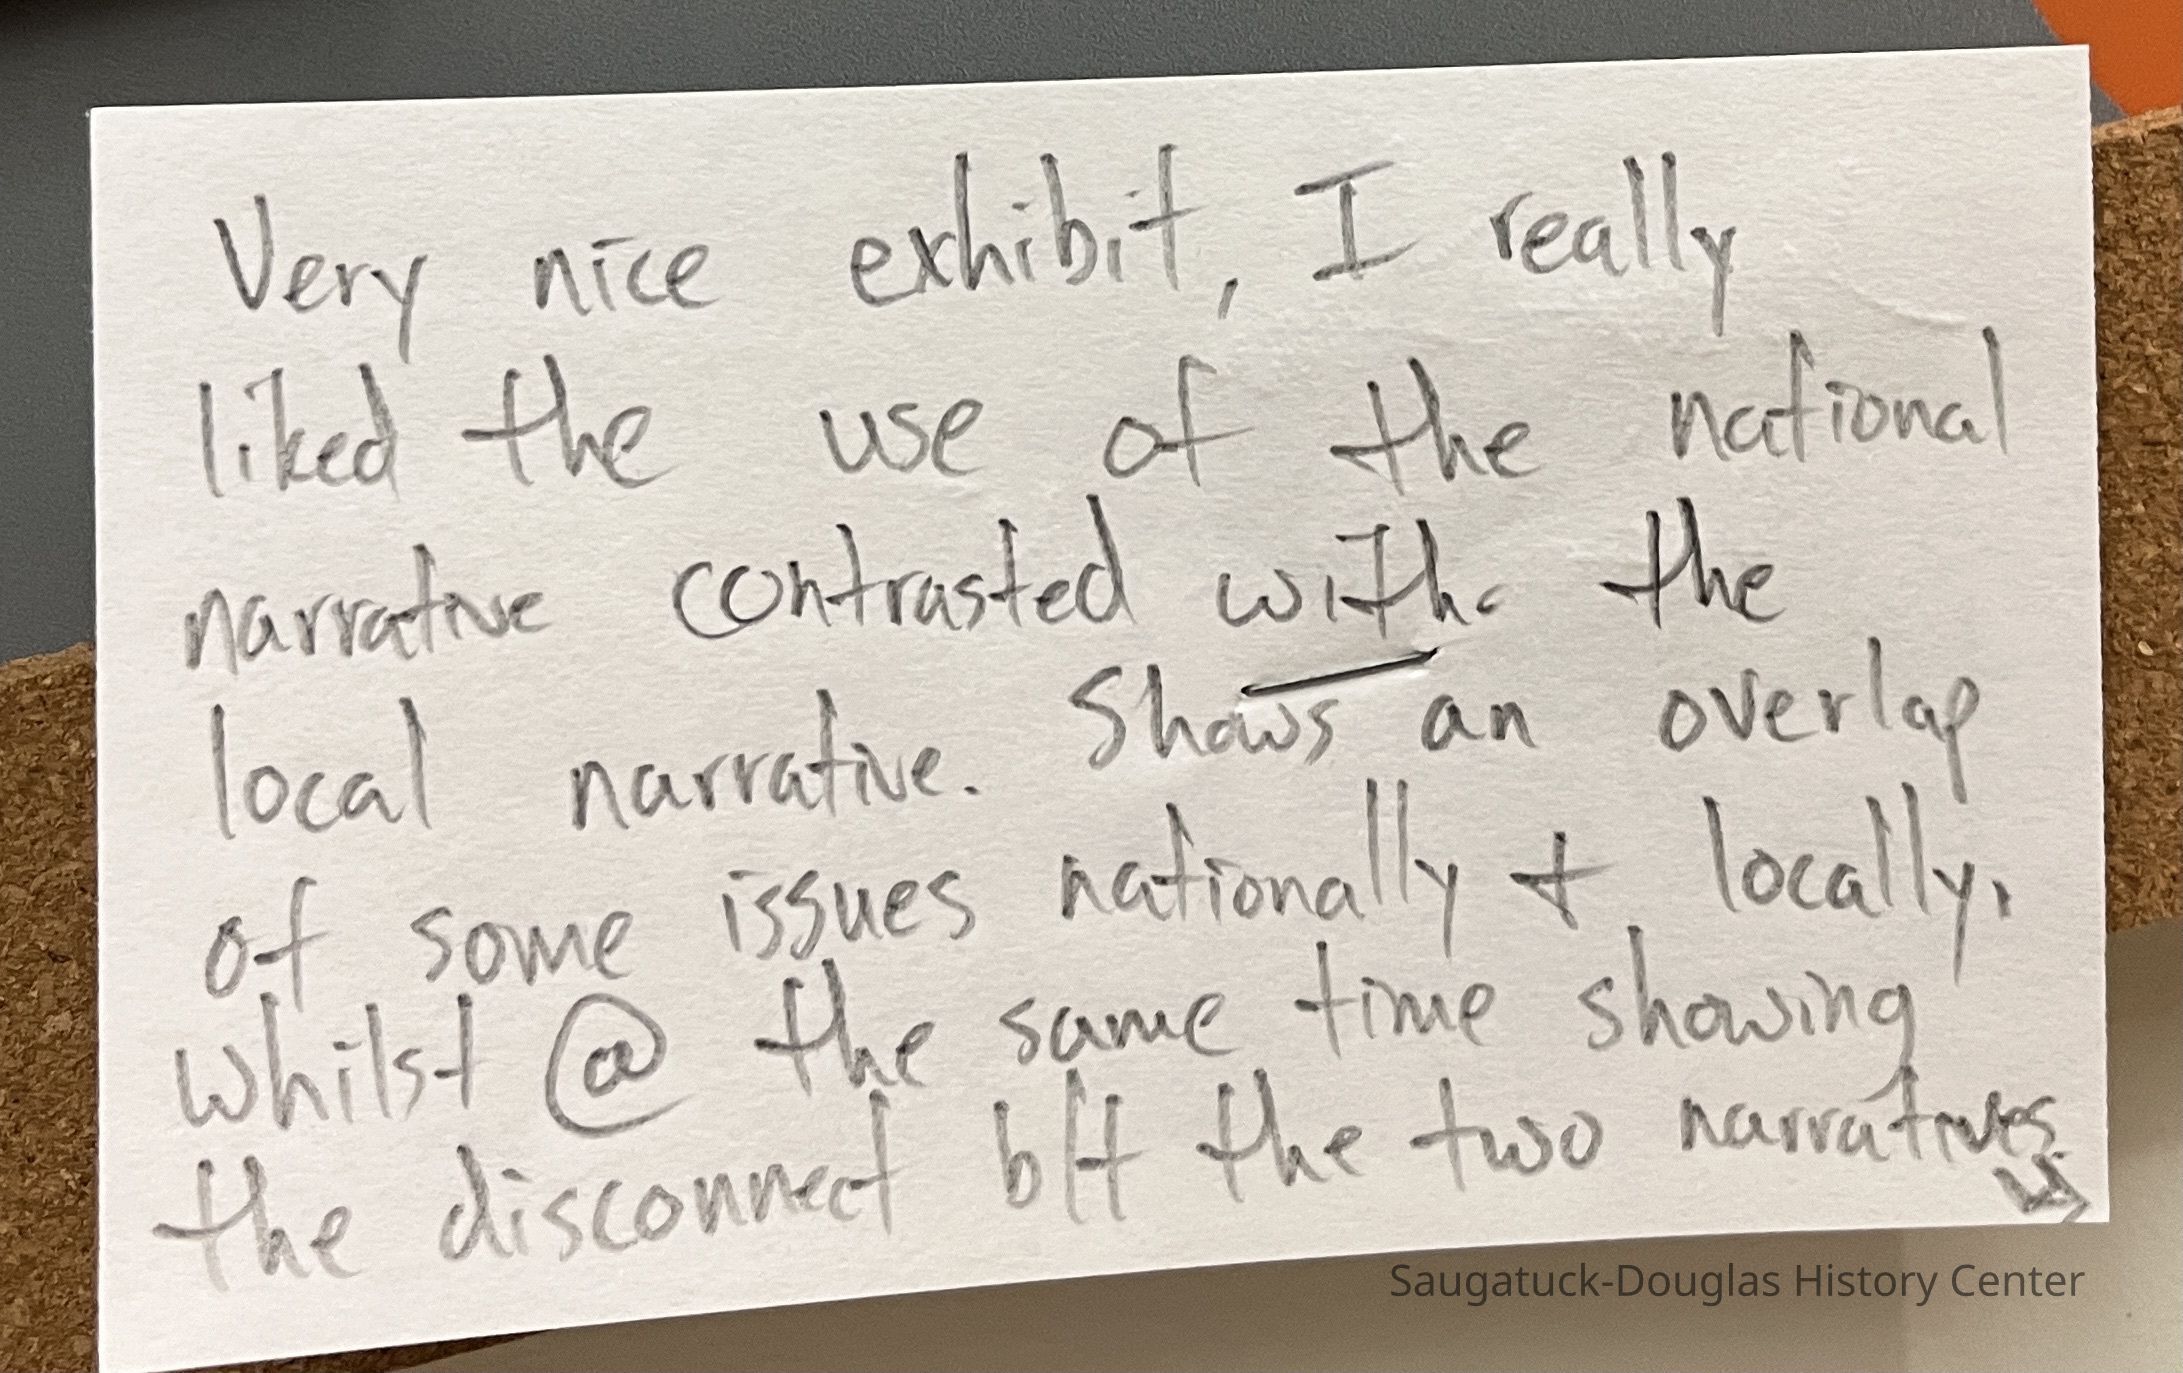 Very nice exhibit, I really
liked the use of the national
narrative contrasted with the
local narrative. Shows an overlap
of some issues nationally & locally,
whilst @ the same time showing
the disconnect btt the two narratives
Saugatuck-Douglas History Center